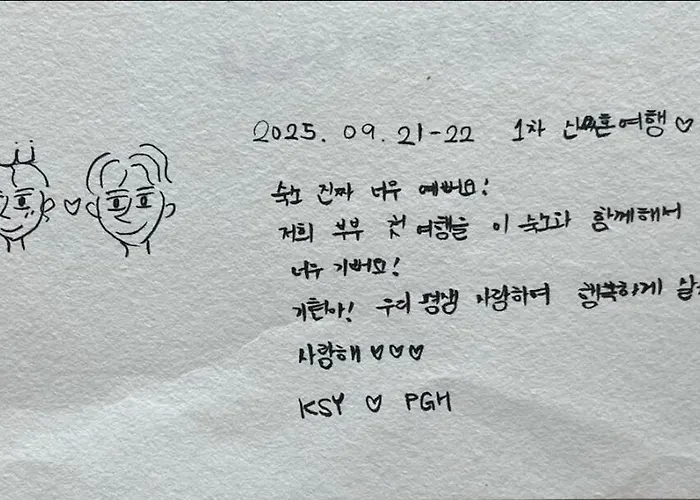 2025. 09. 21-22 1차 신혼여행 ♡
숙소 진짜 너무 예뻐요!
저희 부부 첫 여행을 이 숙소와 함께해서
너무 기뻐요!
기현아! 우리 평생 사랑하며 행복하게 살
사랑해 ♡♡♡
KSY ♡ PGH